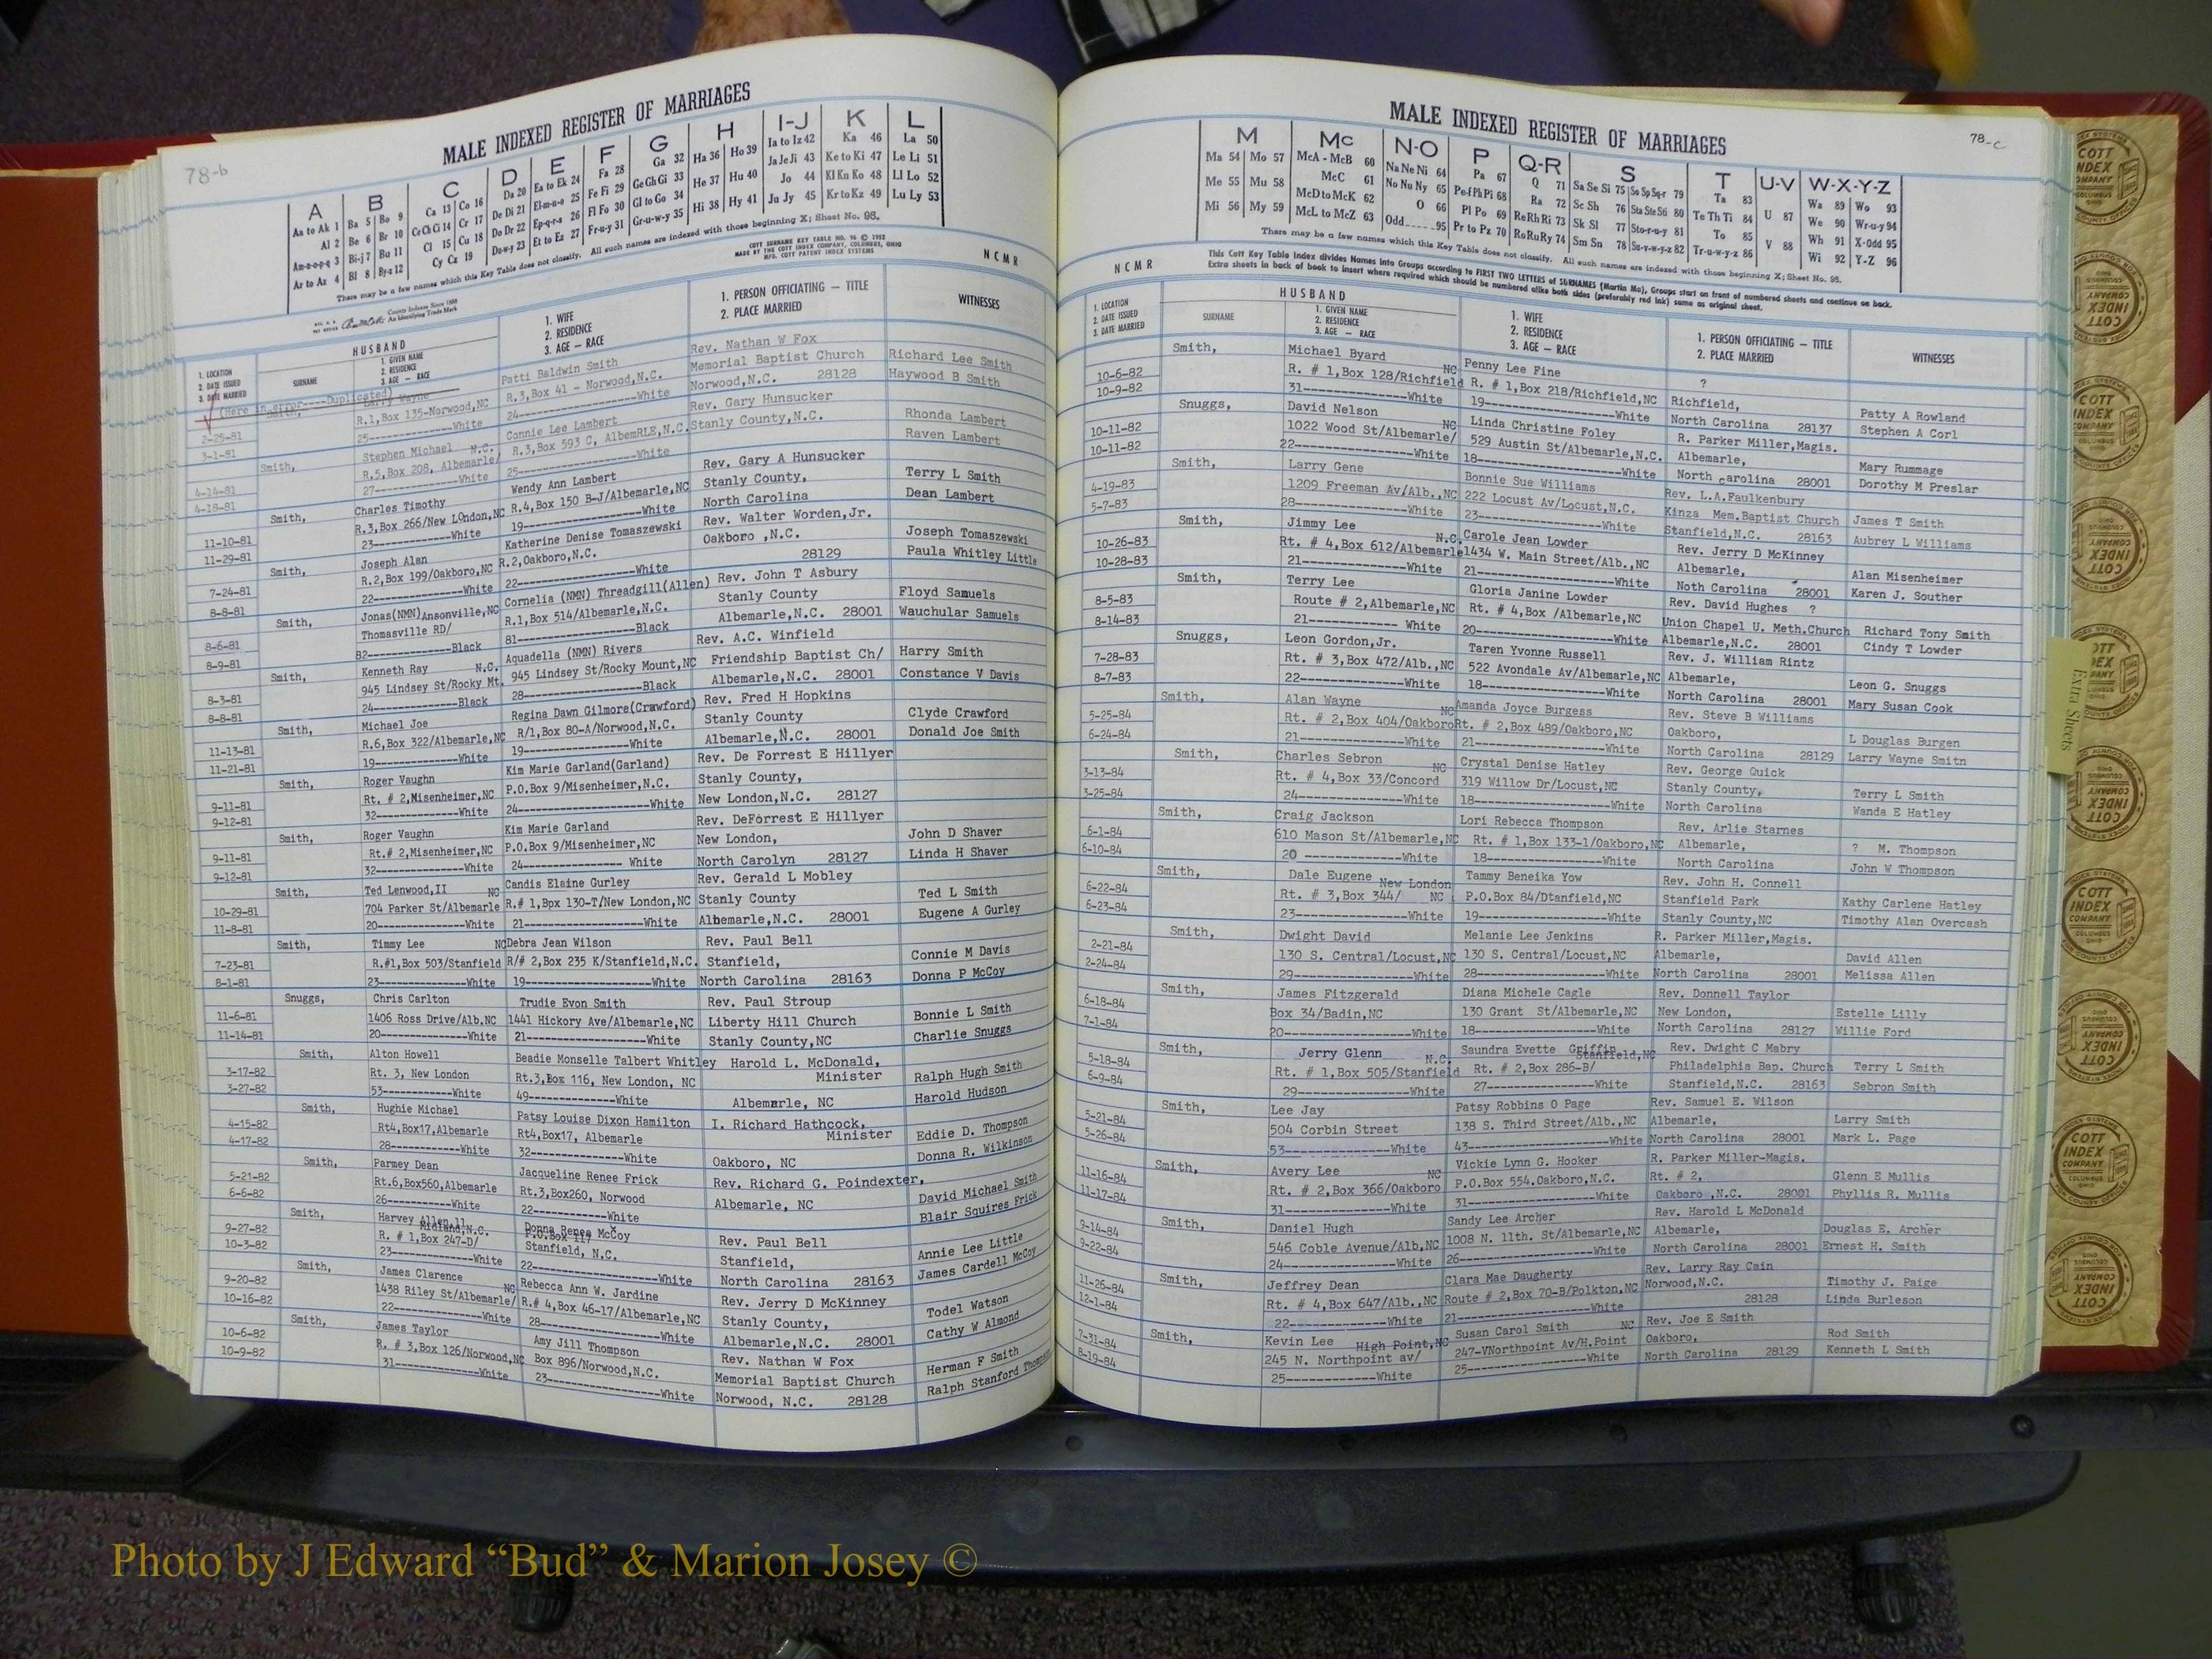 78-b
MALE INDEXED REGISTER OF MARRIAGES
A B C D E F G H I-J K L
Aa to Ak 1 Ba 5 Bo 9 Ca 13 Co 16 Da 20 Ea to Ek 24 Fa 28 Ga 32 Ha 36 Ho 39 Ia to Iz 42 Ka 46 La 50
Al 2 Be 6 Br 10 Ce Ch Ci 14 Cr 17 De Di 21 El-m-n-o 25 Fe Fi 29 Ge Gh Gi 33 He 37 Hu 40 Ja Je Ji 43 Ke to Ki 47 Le Li 51
Am-n-o-p-q 3 Bi-j 7 Bu 11 Cl 15 Cu 18 Do Dr 22 Ep-q-r-s 26 Fl Fo 30 Gl to Go 34 Hi 38 Hy 41 Jo 44 Kl Kn Ko 48 Ll Lo 52
Ar to Az 4 Bl 8 By-z 12 Cy Cz 19 Du-w-y 23 Et to Ez 27 Fr-u-y 31 Gr-u-w-y 35 Ju Jy 45 Kr to Kz 49 Lu Ly 53
There may be a few names which this Key Table does not classify. All such names are indexed with those beginning X; Sheet No. 95.
COTT SURNAME KEY TABLE NO. 96 © 1952
MADE BY THE COTT INDEX COMPANY, COLUMBUS, OHIO
MFG. COTT PATENT INDEX SYSTEMS
County Indexes Since 1888
An Identifying Trade Mark
NCMR
1. LOCATION
2. DATE ISSUED
3. DATE MARRIED
HUSBAND
SURNAME
1. GIVEN NAME
2. RESIDENCE
3. AGE — RACE
1. WIFE
2. RESIDENCE
3. AGE — RACE
1. PERSON OFFICIATING — TITLE
2. PLACE MARRIED
WITNESSES
(Here in error----Duplicated)
Smith, Larry Wayne Patti Baldwin Smith Rev. Nathan W Fox
2-25-81 R.1,Box 135-Norwood,NC R.3,Box 41 - Norwood,N.C. Memorial Baptist Church Richard Lee Smith
3-1-81 25-------------White 24----------------------White Norwood,N.C. 28128 Haywood B Smith
Smith, Stephen Michael N.C. Connie Lee Lambert Rev. Gary Hunsucker
4-14-81 R.5,Box 208, Albemarle/ R.3,Box 593 C, AlbemRLE,N.C. Stanly County,N.C. Rhonda Lambert
4-18-81 27-------------White 25----------------------White Raven Lambert
Smith, Charles Timothy Wendy Ann Lambert Rev. Gary A Hunsucker
11-10-81 R.3,Box 266/New London,NC R.4,Box 150 B-J/Albemarle,NC Stanly County, Terry L Smith
11-29-81 23-------------White 19----------------------White North Carolina Dean Lambert
Smith, Joseph Alan Katherine Denise Tomaszewski Rev. Walter Worden,Jr.
7-24-81 R.2,Box 199/Oakboro,NC R.2,Oakboro,N.C. Oakboro ,N.C. Joseph Tomaszewski
8-8-81 22-------------White 22----------------------White 28129 Paula Whitley Little
Smith, Jonas(NMN)Ansonville,NC Cornelia (NMN) Threadgill(Allen) Rev. John T Asbury
8-6-81 Thomasville RD/ R.1,Box 514/Albemarle,N.C. Stanly County Floyd Samuels
8-9-81 82-------------Black 81----------------------Black Albemarle,N.C. 28001 Wauchular Samuels
Smith, Kenneth Ray N.C. Aquadella (NMN) Rivers Rev. A.C. Winfield
8-3-81 945 Lindsey St/Rocky Mt. 945 Lindsey St/Rocky Mount,NC Friendship Baptist Ch/ Harry Smith
8-8-81 24-------------Black 28----------------------Black Albemarle,N.C. 28001 Constance V Davis
Smith, Michael Joe Regina Dawn Gilmore(Crawford) Rev. Fred H Hopkins
11-13-81 R.6,Box 322/Albemarle,NC R/1,Box 80-A/Norwood,N.C. Stanly County Clyde Crawford
11-21-81 19-------------White 19----------------------White Albemarle,N.C. 28001 Donald Joe Smith
Smith, Roger Vaughn Kim Marie Garland(Garland) Rev. De Forrest E Hillyer
9-11-81 Rt. # 2,Misenheimer,NC P.O.Box 9/Misenheimer,N.C. Stanly County,
9-12-81 32-------------White 24----------------------White New London,N.C. 28127
Smith, Roger Vaughn Kim Marie Garland Rev. DeForrest E Hillyer
9-11-81 Rt.# 2,Misenheimer,NC P.O.Box 9/Misenheimer,NC New London, John D Shaver
9-12-81 32-------------White 24---------------- White North Carolyn 28127 Linda H Shaver
Smith, Ted Lenwood,II NC Candis Elaine Gurley Rev. Gerald L Mobley
10-29-81 704 Parker St/Albemarle R.# 1,Bpx 130-T/New London,NC Stanly County Ted L Smith
11-8-81 20-------------White 21----------------------White Albemarle,N.C. 28001 Eugene A Gurley
Smith, Timmy Lee NC Debra Jean Wilson Rev. Paul Bell
7-23-81 R.#1,Box 503/Stanfield R/# 2,Box 235 K/Stanfield,N.C. Stanfield, Connie M Davis
8-1-81 23-------------White 19----------------------White North Carolina 28163 Donna P McCoy
Snuggs, Chris Carlton Trudie Evon Smith Rev. Paul Stroup
11-6-81 1406 Ross Drive/Alb,NC 1441 Hickory Ave/Albemarle,NC Liberty Hill Church Bonnie L Smith
11-14-81 20-------------White 21----------------------White Stanly County,NC Charlie Snuggs
Smith, Alton Howell Beadie Monselle Talbert Whitley Harold L. McDonald,
3-17-82 Rt. 3, New London Rt.3,Box 116, New London, NC Minister Ralph Hugh Smith
3-27-82 53-------------White 49-------------White Albemarle, NC Harold Hudson
Smith, Hughie Michael Patsy Louise Dixon Hamilton I. Richard Hathcock,
4-15-82 Rt4,Box17,Albemarle Rt4,Box17, Albemarle Minister Eddie D. Thompson
4-17-82 28-----------White 32-------------White Oakboro, NC Donna R. Wilkinson
Smith, Parmey Dean Jacqueline Renee Frick Rev. Richard G. Poindexter,
5-21-82 Rt.6,Box560,Albemarle Rt.3,Box260, Norwood Albemarle, NC David Michael Smith
6-6-82 26-----------White 22------------White Blair Squires Frick
Smith, Harvey Allen,11 Midland,N.C. Donna Renee McCoy P.O.Box 117
9-27-82 R. # 1,Box 247-D/ Stanfield, N.C. Rev. Paul Bell Annie Lee Little
10-3-82 23-------------White 22----------------------White Stanfield, James Cardell McCoy
North Carolina 28163
Smith, James Clarence NC Rebecca Ann W. Jardine Rev. Jerry D McKinney
9-20-82 1438 Riley St/Albemarle/ R.# 4,Box 46-17/Albemarle,NC Stanly County, Todel Watson
10-16-82 22-------------White 28----------------------White Albemarle,N.C. 28001 Cathy W Almond
Smith, James Taylor Amy Jill Thompson Rev. Nathan W Fox
10-6-82 R. # 3,Box 126/Norwood,NC Box 896/Norwood,N.C. Memorial Baptist Church Herman F Smith
10-9-82 31-------------White 23----------------------White Norwood, N.C. 28128 Ralph Stanford Thompson
78-c
MALE INDEXED REGISTER OF MARRIAGES
M Mc N-O P Q-R S T U-V W-X-Y-Z
Ma 54 Mo 57 McA - McB 60 Na Ne Ni 64 Pa 67 Q 71 Sa Se Si 75 So Sp Sq-r 79 Ta 83 U 87 Wa 89 Wo 93
Me 55 Mu 58 McC 61 No Nu Ny 65 Pe-f Ph Pi 68 Ra 72 Sc Sh 76 Sta Ste Sti 80 Te Th Ti 84 V 88 We 90 Wr-u-y 94
Mi 56 My 59 McD to McK 62 O 66 Pl Po 69 Re Rh Ri 73 Sk Sl 77 Sto-r-u-y 81 To 85 Wh 91 X-Odd 95
McL to McZ 63 Odd 95 Pr to Pz 70 Ro Ru Ry 74 Sm Sn 78 Su-v-w-y-z 82 Tr-u-w-y-z 86 Wi 92 Y-Z 96
There may be a few names which this Key Table does not classify. All such names are indexed with those beginning X; Sheet No. 95.
This Cott Key Table Index divides Names into Groups according to FIRST TWO LETTERS of SURNAMES (Martin Ma), Groups start on front of numbered sheets and continue on back.
Extra sheets in back of book to insert where required which should be numbered alike both sides (preferably red ink) same as original sheet.
NCMR
1. LOCATION
2. DATE ISSUED
3. DATE MARRIED
HUSBAND
SURNAME
1. GIVEN NAME
2. RESIDENCE
3. AGE — RACE
1. WIFE
2. RESIDENCE
3. AGE — RACE
1. PERSON OFFICIATING — TITLE
2. PLACE MARRIED
WITNESSES
Smith, Michael Byard NC Penny Lee Fine ?
10-6-82 R. # 1,Box 128/Richfield R. # 1,Box 218/Richfield,NC Richfield, Patty A Rowland
10-9-82 31-------------White 19----------------------White North Carolina 28137 Stephen A Corl
Snuggs, David Nelson NC Linda Christine Foley R. Parker Miller,Magis.
10-11-82 1022 Wood St/Albemarle/ 529 Austin St/Albemarle,N.C. Albemarle, Mary Rummage
10-11-82 22-------------White 18----------------------White North carolina 28001 Dorothy M Preslar
Smith, Larry Gene Bonnie Sue Williams Rev. L.A.Faulkenbury
4-19-83 1209 Freeman Av/Alb.,NC 222 Locust Av/Locust,N.C. Kinza Mem.Baptist Church James T Smith
5-7-83 28-------------White 23----------------------White Stanfield,N.C. 28163 Aubrey L Williams
Smith, Jimmy Lee N.C. Carole Jean Lowder Rev. Jerry D McKinney
10-26-83 Rt. # 4,Box 612/Albemarle 1434 W. Main Street/Alb.,NC Albemarle, Alan Misenheimer
10-28-83 21-------------White 21----------------------White Noth Carolina 28001 Karen J. Souther
Smith, Terry Lee Gloria Janine Lowder Rev. David Hughes ?
8-5-83 Route # 2,Albemarle,NC Rt. # 4,Box /Albemarle,NC Union Chapel U. Meth.Church Richard Tony Smith
8-14-83 21------------ White 20----------------------White Albemarle,N.C. 28001 Cindy T Lowder
Snuggs, Leon Gordon,Jr. Taren Yvonne Russell Rev. J. William Rintz
7-28-83 Rt. # 3,Box 472/Alb.,NC 522 Avondale Av/Albemarle,NC Albemarle, Leon G. Snuggs
8-7-83 22-------------White 18----------------------White North Carolina 28001 Mary Susan Cook
Smith, Alan Wayne NC Amanda Joyce Burgess Rev. Steve B Williams
5-25-84 Rt. # 2,Box 404/Oakboro Rt. # 2,Box 489/Oakboro,NC Oakboro, L Douglas Burgen
6-24-84 21-------------White 21----------------------White North Carolina 28129 Larry Wayne Smitn
Smith, Charles Sebron NC Crystal Denise Hatley Rev. George Quick
3-13-84 Rt. # 4,Box 33/Concord 319 Willow Dr/Locust,NC Stanly County, Terry L Smith
3-25-84 24-------------White 18----------------------White North Carolina Wanda E Hatley
Smith, Craig Jackson Lori Rebecca Thompson Rev. Arlie Starnes
6-1-84 610 Mason St/Albemarle,NC Rt. # 1,Box 133-1/Oakboro,NC Albemarle, ? M. Thompson
6-10-84 20 -------------White 18----------------------White North Carolina John W Thompson
Smith, Dale Eugene New London Tammy Beneika Yow Rev. John H. Connell
6-22-84 Rt. # 3,Box 344/ NC P.O.Box 84/Dtanfield,NC Stanfield Park Kathy Carlene Hatley
6-23-84 23-------------White 19----------------------White Stanly County,NC Timothy Alan Overcash
Smith, Dwight David Melanie Lee Jenkins R. Parker Miller,Magis.
2-21-84 130 S. Central/Locust,NC 130 S. Central/Locust,NC Albemarle, David Allen
2-24-84 29-------------White 28----------------------White North Carolina 28001 Melissa Allen
Smith, James Fitzgerald Diana Michele Cagle Rev. Donnell Taylor
6-18-84 Box 34/Badin,NC 130 Grant St/Albemarle,NC New London, Estelle Lilly
7-1-84 20-------------White 18----------------------White North Carolina 28127 Willie Ford
Smith, Jerry Glenn N.C. Saundra Evette Griffin Stanfield,NC Rev. Dwight C Mabry
5-18-84 Rt. # 1,Box 505/Stanfield Rt. # 2,Box 286-B/ Philadelphia Bap. Church Terry L Smith
6-9-84 29-------------White 27----------------------White Stanfield,N.C. 28163 Sebron Smith
Smith, Lee Jay Patsy Robbins O Page Rev. Samuel E. Wilson
5-21-84 504 Corbin Street 138 S. Third Street/Alb.,NC Albemarle, Larry Smith
5-26-84 53-------------White 43----------------------White North Carolina 28001 Mark L. Page
Smith, Avery Lee NC Vickie Lynn G. Hooker R. Parker Miller-Magis.
11-16-84 Rt. # 2,Box 366/Oakboro P.O.Box 554,Oakboro,N.C. Rt. # 2, Glenn E Mullis
11-17-84 31-------------White 31----------------------White Oakboro ,N.C. 28001 Phyllis R. Mullis
Smith, Daniel Hugh Sandy Lee Archer Rev. Harold L McDonald
9-14-84 546 Coble Avenue/Alb,NC 1008 N. 11th. St/Albemarle,NC Albemarle, Douglas E. Archer
9-22-84 24-------------White 26----------------------White North Carolina 28001 Ernest H. Smith
Smith, Jeffrey Dean Clara Mae Daugherty Rev. Larry Ray Cain
11-26-84 Rt. # 4,Box 647/Alb.,NC Route # 2,Box 70-B/Polkton,NC Norwood,N.C. Timothy J. Paige
12-1-84 22-------------White 21----------------------White 28128 Linda Burleson
Smith, Kevin Lee High Point,NC Susan Carol Smith NC Rev. Joe E Smith
7-31-84 245 N. Northpoint av/ 247-VNorthpoint Av/H.Point Oakboro, Rod Smith
8-19-84 25-------------White 25----------------------White North Carolina 28129 Kenneth L Smith
Extra Sheets
COTT
INDEX
COMPANY
COLUMBUS
OHIO
Photo by J Edward “Bud” & Marion Josey ©